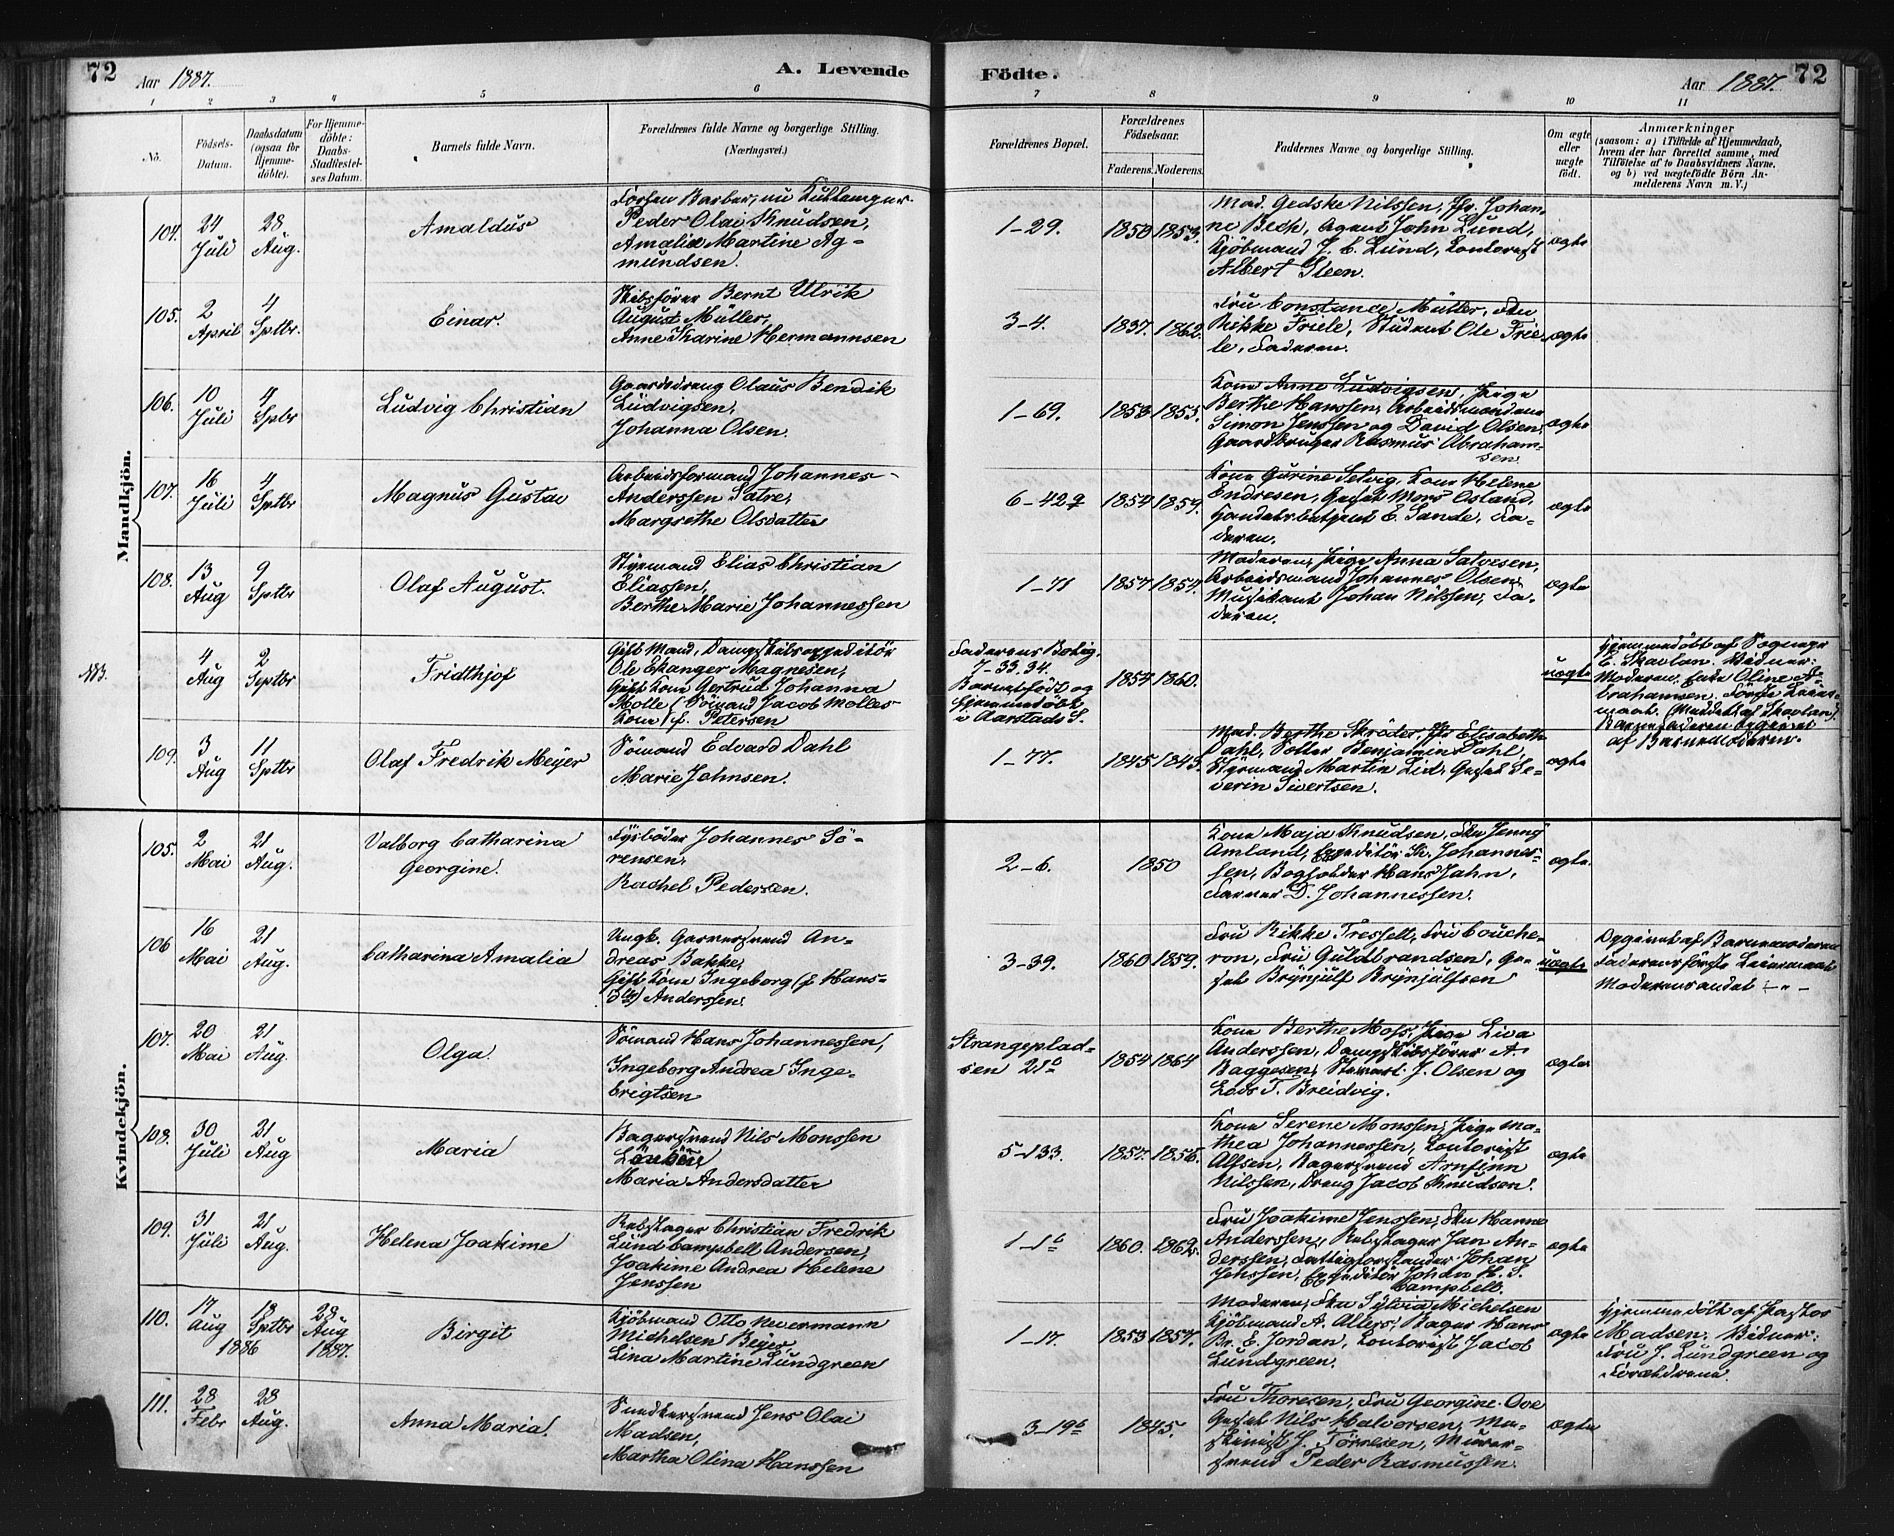 72 Aar 1887. A. Levende
Födte. Aar 1887. 72
1 2 3 4 5 6
7 8 9 10 11
No.
Födsels-
Datum.
Daabsdatum
(ogsaa for
Hjemme-
döbte).
For Hjemme-
döbte:
Daabs-
Stadfæstel-
ses Datum.
Barnets fulde Navn.
Forældrenes fulde Navne og borgerlige Stilling.
(Næringsvei.)
Forældrenes Bopæl.
Forældrenes
Födselsaar.
Faderens. Moderens.
Faddernes Navne og borgerlige Stilling.
Om ægte
eller
uægte
födt.
Anmærkninger
(saasom: a) i Tilfælde af Hjemmedaab,
hvem der har forrettet samme, med
Tilföielse af to Daabsvidners Navne,
og b) ved uægtefödte Börn An-
melderens Navn m. V.)
Mandkjön.
104.
24
Juli
28
Aug.
Amaldus
Barber, nu
Peder Olai Knudsen,
Amalia Martine Ag-
mundsen.
1–29.
1850 1853.
Mad. Gedske Nilssen, Jfr. Johan-
ne Bech, Agent John Lund,
Kjöbmand J. C. Lund, Kontorist
Albert Steen.
ægte
105.
2
April
4
Sptbr.
Einar.
Skibsförer Bernt Ulrik
August Müller,
Anne Karine Hermannsen
3–4.
1837. 1862.
Fru Constance Müller, Fru
Rikke Friele, Student Ole Frie-
le, Faderen.
ægte
106.
10
Juli
4
Sptbr
Ludvig Christian
Gaardsdreng Olaus Bendik
Ludvigsen,
Johanna Olsen.
1–69.
1853 1853.
Kone Anne Ludvigsen, Pige
Berthe Hanssen, Arbeidsmændene
Simon Jenssen og David Olsen,
Gaardbruger Rasmus Abraham-
sen.
ægte
107.
16
Juli
4
Sptbr
Magnus Gustav
Arbeidsformand Johannes
Anderssen Sætre,
Margrethe Olsdatter
6–42
1854 1859.
Kone Gurine Selvig, Kone Helene
Endresen, Gesel Mons Osland,
Handelsbetjent E. Sande, Fa-
deren.
ægte
108.
13
Aug
9
Sptbr
Olaf August.
Styrmand Elias Christian
Eliassen,
Berthe Marie Johannessen
1–71
1857 1857.
Moderen, Pige Anna Salvesen,
Arbeidsmand Johannes Olsen,
Musikant Johan Nilssen, Fa-
deren.
ægte
NB.
4
Aug
2
Septbr
Fridthjof
Gift Mand, Dampskibsexpeditör
Ole Ekanger Magnesen,
Gift Kone Gertrud Johanna
Molle (Sömand Jacob Molles
Kone) f. Petersen
Faderens Bolig.
7–33.34.
Barnet födt og
hjemmedöbt
i Aarstads S.
1854 1860.
uægte
Hjemmedöbt af Sogneprest
E. Skavlan. Vidner:
Moderen, Enke Oline A-
brahamsen. Förste Leier-
maal. (Meddelt af Skavlan).
Barnefaderen opgivet
af Barnemoderen.
109.
3
Aug
11
Sptbr
Olaf Fredrik Meyer
Sömand Edvard Dahl
Marie Johnsen.
1–77.
1845 1843.
Mad. Berthe Skröder, Jfr Elisabeth
Dahl, Benjamin Dahl,
Styrmand Martin Lid, Gesel Se-
verin Sivertsen.
ægte
Kvindekjön.
105.
2
Mai
21
Aug.
Valborg Catharina
Georgine.
Fyrböder Johannes Sö-
rensen,
Rachel Pedersen.
2–6.
1850
Kone Maja Knudsen, Fru Jenny
Amland, Expeditör Johannes-
sen, Bogholder Hans Jahn,
Farver D. Johannessen.
ægte.
106
16
Mai
21
Aug.
Catharina Amalia
Ungk. Garversvend An-
dreas Bakke,
Gift Kone Ingeborg (f. Hans-
dtr) Anderssen.
3–39.
1860 1859.
Fru Rikke Tressell, Fru Couche-
ron, Fru Guldbrandsen, Ge-
sel Brynjulf Brynjulfsen
uægte
Opgivet af Barnemoderen
Faderens förste Leiermaal
Moderens andet –"–
107.
20
Mai
21
Aug.
Olga.
Sömand Hans Johannessen,
Ingeborg Andrea Inge-
brigtsen
Strangeplad-
sen 21ᵇ
1854 1864
Kone Berthe Moss, Pige Lina
Anderssen, Dampskibsförer A.
Baggesen, Stuert J. Olsen og
Lods T. Breidvig.
ægte
108.
30
Juli
21
Aug
Maria
Bagersvend Nils Monssen
Maria Andersdatter
5–133.
1857. 1856.
Kone Serene Monssen, Pige Ma-
thea Johannessen, Kontorist
Alfsen, Bagersvend Arnfinn
Nilssen, Dreng Jacob Knudsen.
ægte
109.
31
Juli
21
Aug.
Helena Joakime
Rebslager Christian Fredrik
Lund Campbell Andersen,
Joakime Andrea Helene
Jenssen
1–1ᵇ
1860. 1862.
Fru Joakime Jenssen, Fru Hanne
Anderssen, Rebslager Jan An-
derssen, Fattigforstander Johan
Jenssen, Expeditör Johan H. S.
Campbell.
ægte
110.
17
Aug
1886
18
Sptbr
28
Aug
1887.
Birgit
Kjöbmand Otto Nevermann
Michelsen Beyer
Lina Martine Lundgreen
1–17.
1853 1857.
Moderen, Fru Sylvia Michelsen
Kjöbmand A. Allers, Bager Hans
Br. E. Jordan, Kontorist Jacob
Lundgreen.
ægte
Hjemmedöbt af Pastor
Madsen. Vidner:
Fru J. Lundgreen og
Forældrene.
111.
28
Febr
28
Aug.
Anna Maria.
Snedkersvend Jens Olai
Madsen,
Martha Olina Hanssen
3–19ᵇ
1845.
Fru Thoresen, Fru Georgine Ove
Gesel Nils Halvorsen, Ma-
skinist J. Torresen, Murer-
svend Peder Rasmussen.
ægte